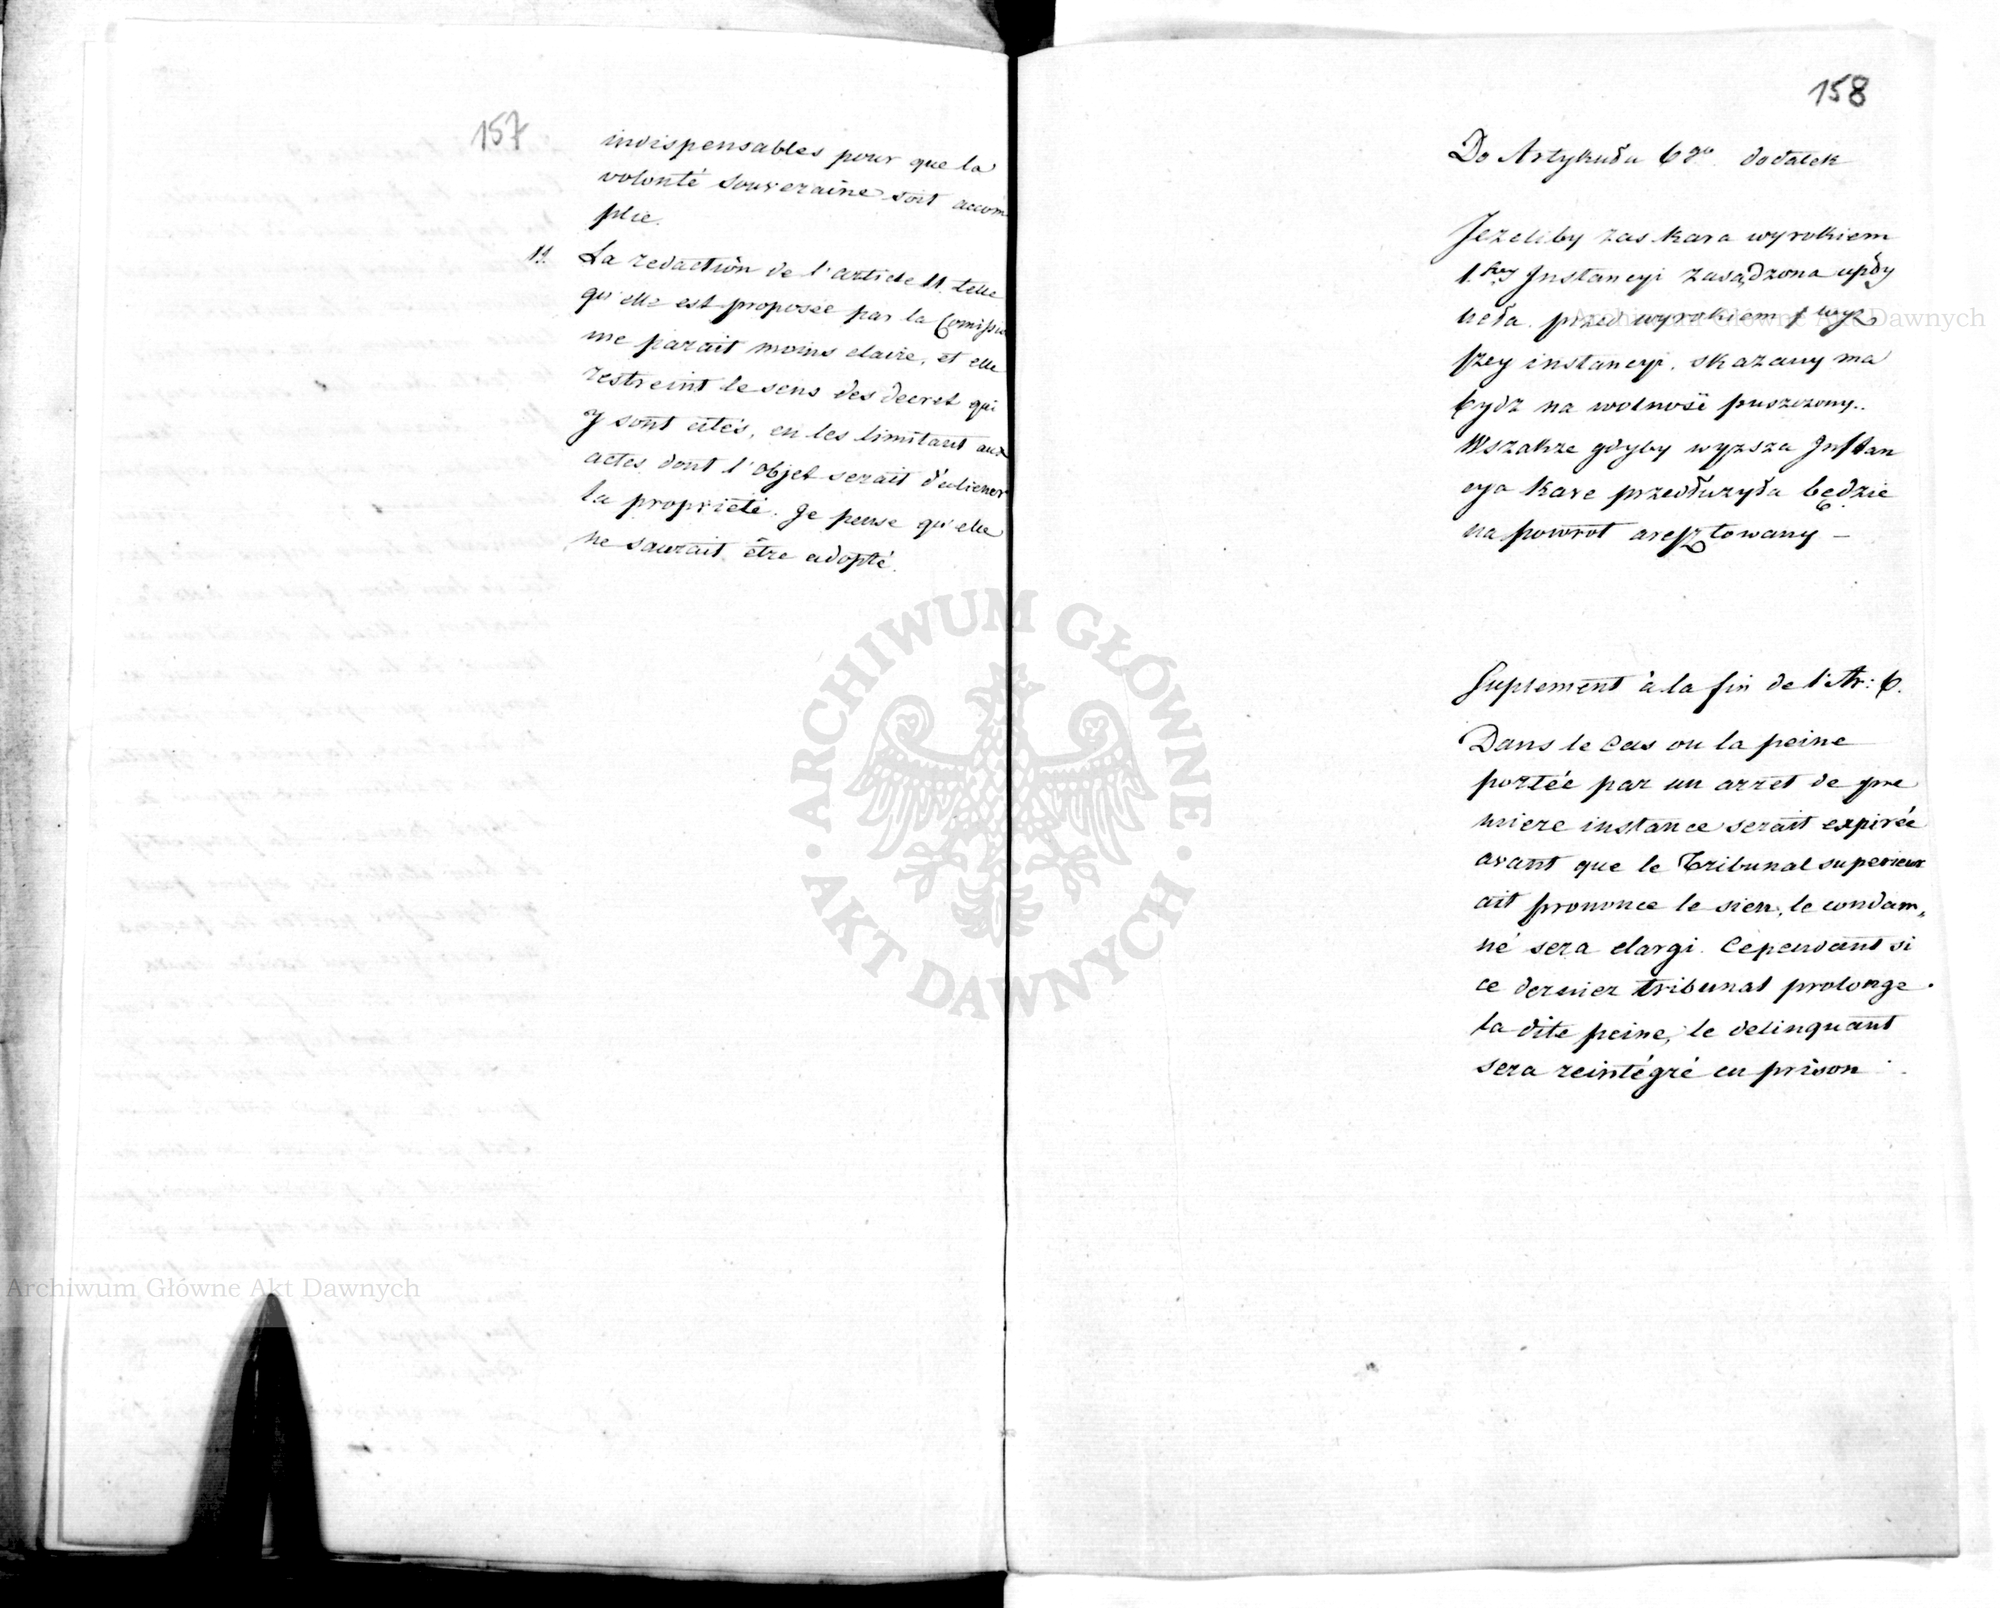 157
indispensables pour que la
volonté souveraine soit accom
plie.
11. La redaction de l'article 11. telle
qu'elle est proposée par la Comissi
me parait moins claire, et elle
restreint le sens des decret qui
y sont cités, en les limitant aux
actes dont l'objet serait d'aliener
la propriété. Je pense qu'elle
ne saurait être adopté.
158
Do Artykułu 6go dodatek
Jezeliby zas kara wyrokiem
1.szey Instancyi zasądzona upły
neła przed wyrokiem wyz
szey instancyi, skazany ma
bydz na wolność puszczony..
Wszakze gdyby wyzsza Instan
cya kare przedłuzyła będzie
na powrot aresztowany –
Suplement à la fin de l'Ar: 6.
Dans le cas ou la peine
portée par un arret de pre
miere instance serait expirée
avant que le Tribunal superieur
ait prononce le sien, le condam„
né sera elargi. Cependant si
ce dernier tribunal prolonge
la dite peine, le delinquant
sera reintégré en prison
ARCHIWUM GŁÓWNE · AKT DAWNYCH ·
Archiwum Główne Akt Dawnych
Archiwum Główne Akt Dawnych